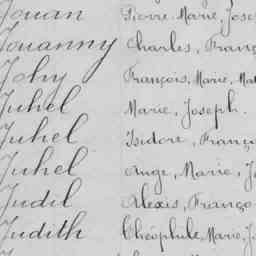 Jouan Pierre, Marie, Jose
Jouanny Charles, Franç
Johy François, Marie, Mat
Juhel Marie, Joseph.
Juhel Isidore, Franço
Juhel Ange, Marie, J
Judil Alexis, Franço
Judith Théophile, Marie, J